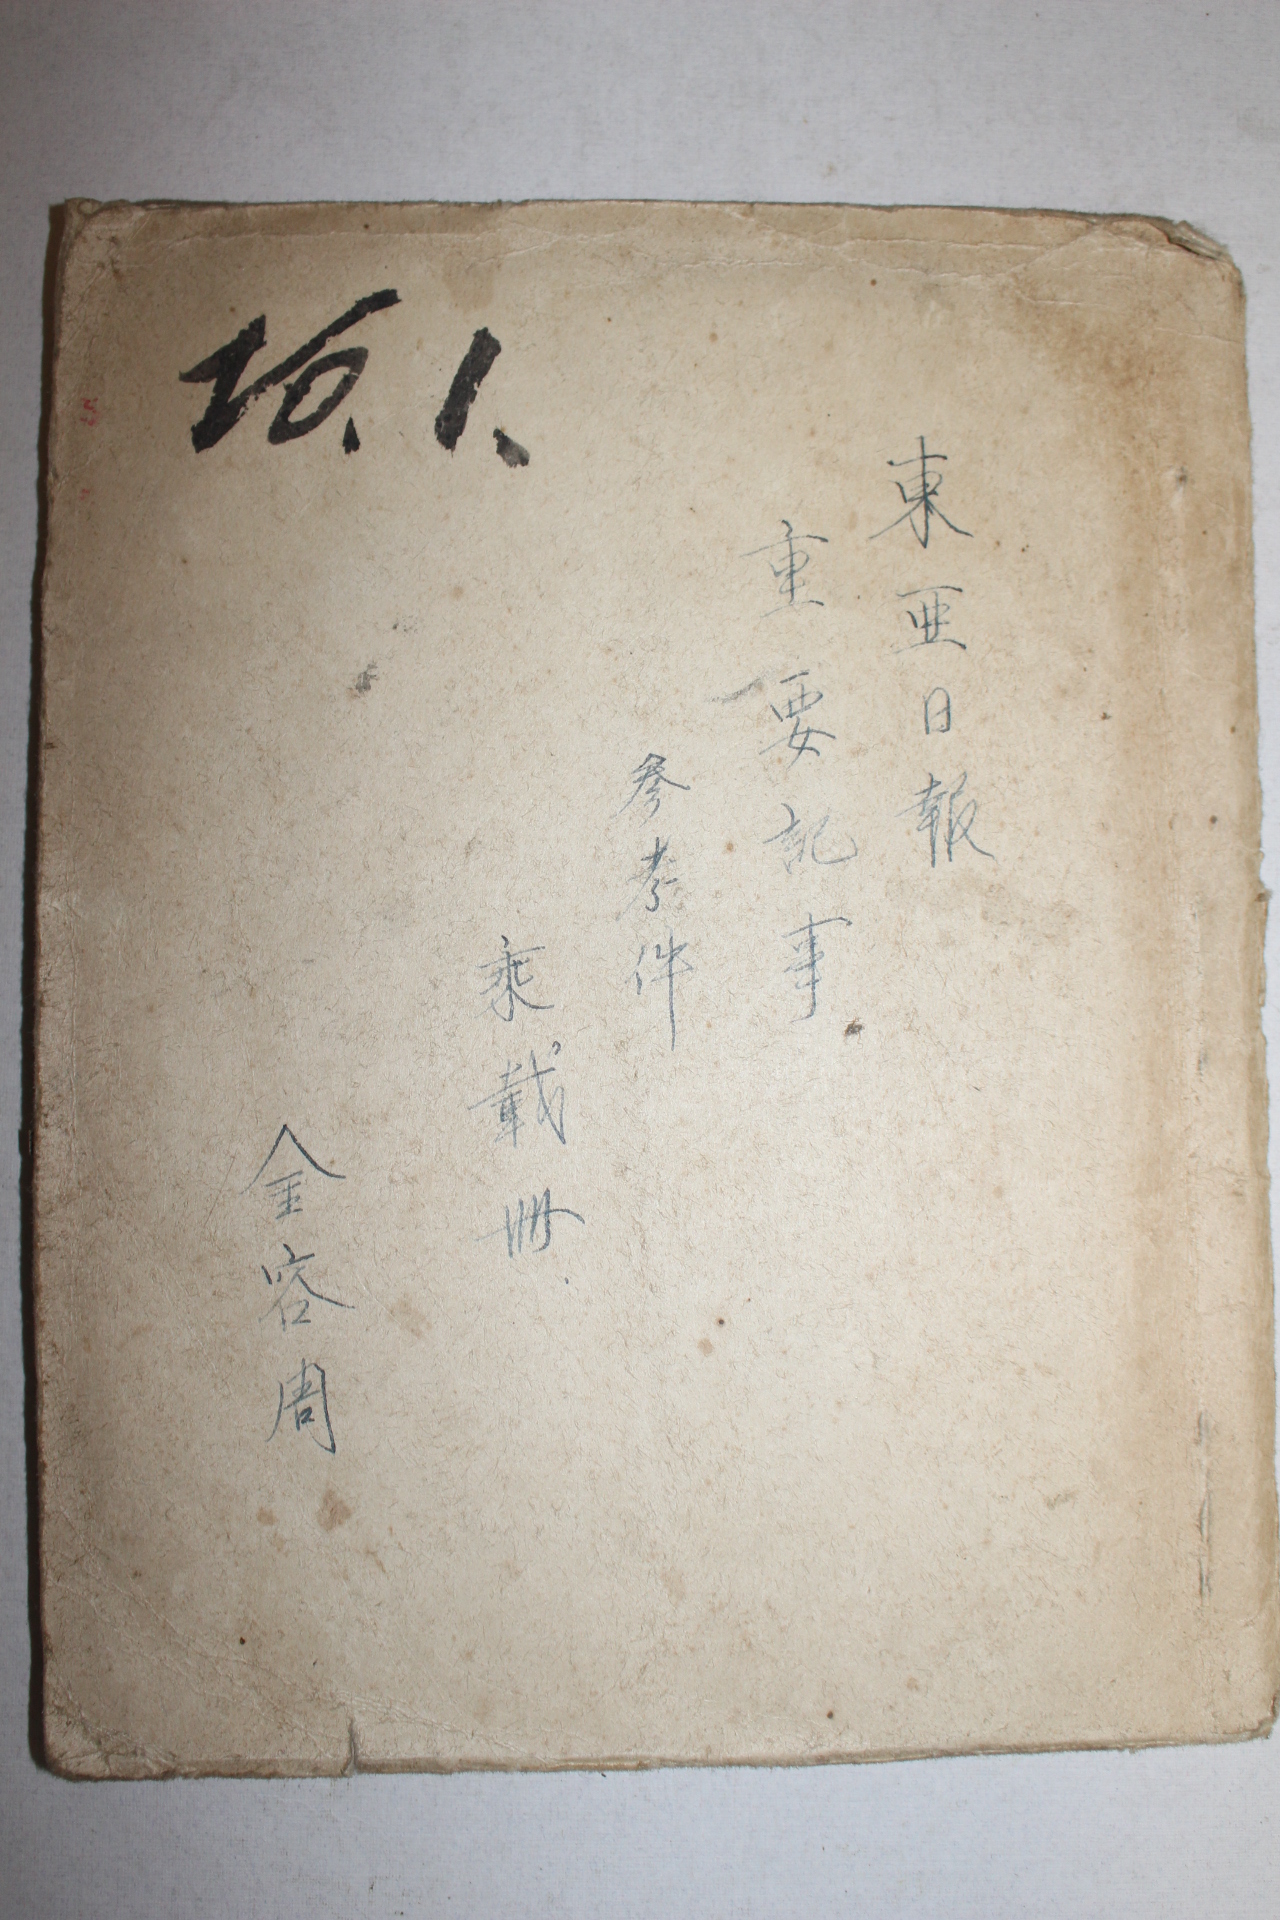 東亜日報
重要記事
参考件
乘載冊.
金容周
No. 1.